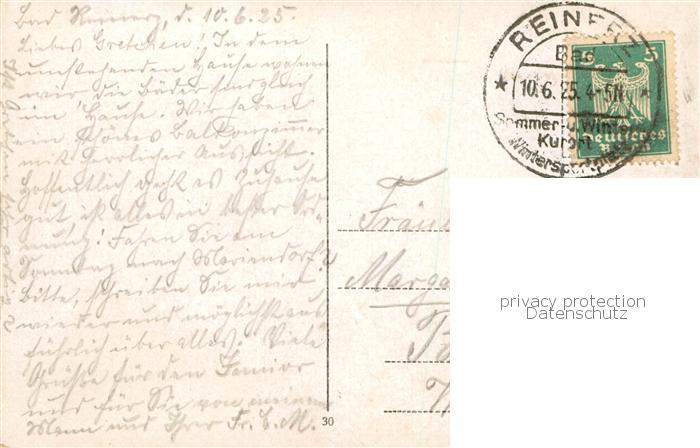 Bad Reinerz, d. 10.6.25.
Liebes Gretchen! In dem
umstehenden Hause wohnen
wir, die Bäder sind gleich
im Hause. Wir haben
ein schönes Balkonzimmer
mit herrlicher Aussicht.
Hoffentlich daß es Zuhause
gut ist alles in bester Ord-
nung! Fahren Sie am
Sonntag nach Mariendorf?
Bitte, schreiben Sie mir
wieder und möglichst aus
führlich über alles. Viele
Grüße für den Senior
und für Sie von meinem
Mann und Ihrer Fr. E. M.
30
REINERZ
Bad
10.6.25.4-5N
Sommer-u.Winter-
Kurort
Wintersportplatz
5 5
Deutsches
Reich
Fräul
Marga
privacy protection
Datenschutz